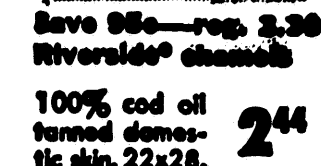 Save 95c—reg. 3.39
Riverside® chamois
100% cod oil
tanned domes-
tic skin. 22x28.
2 44